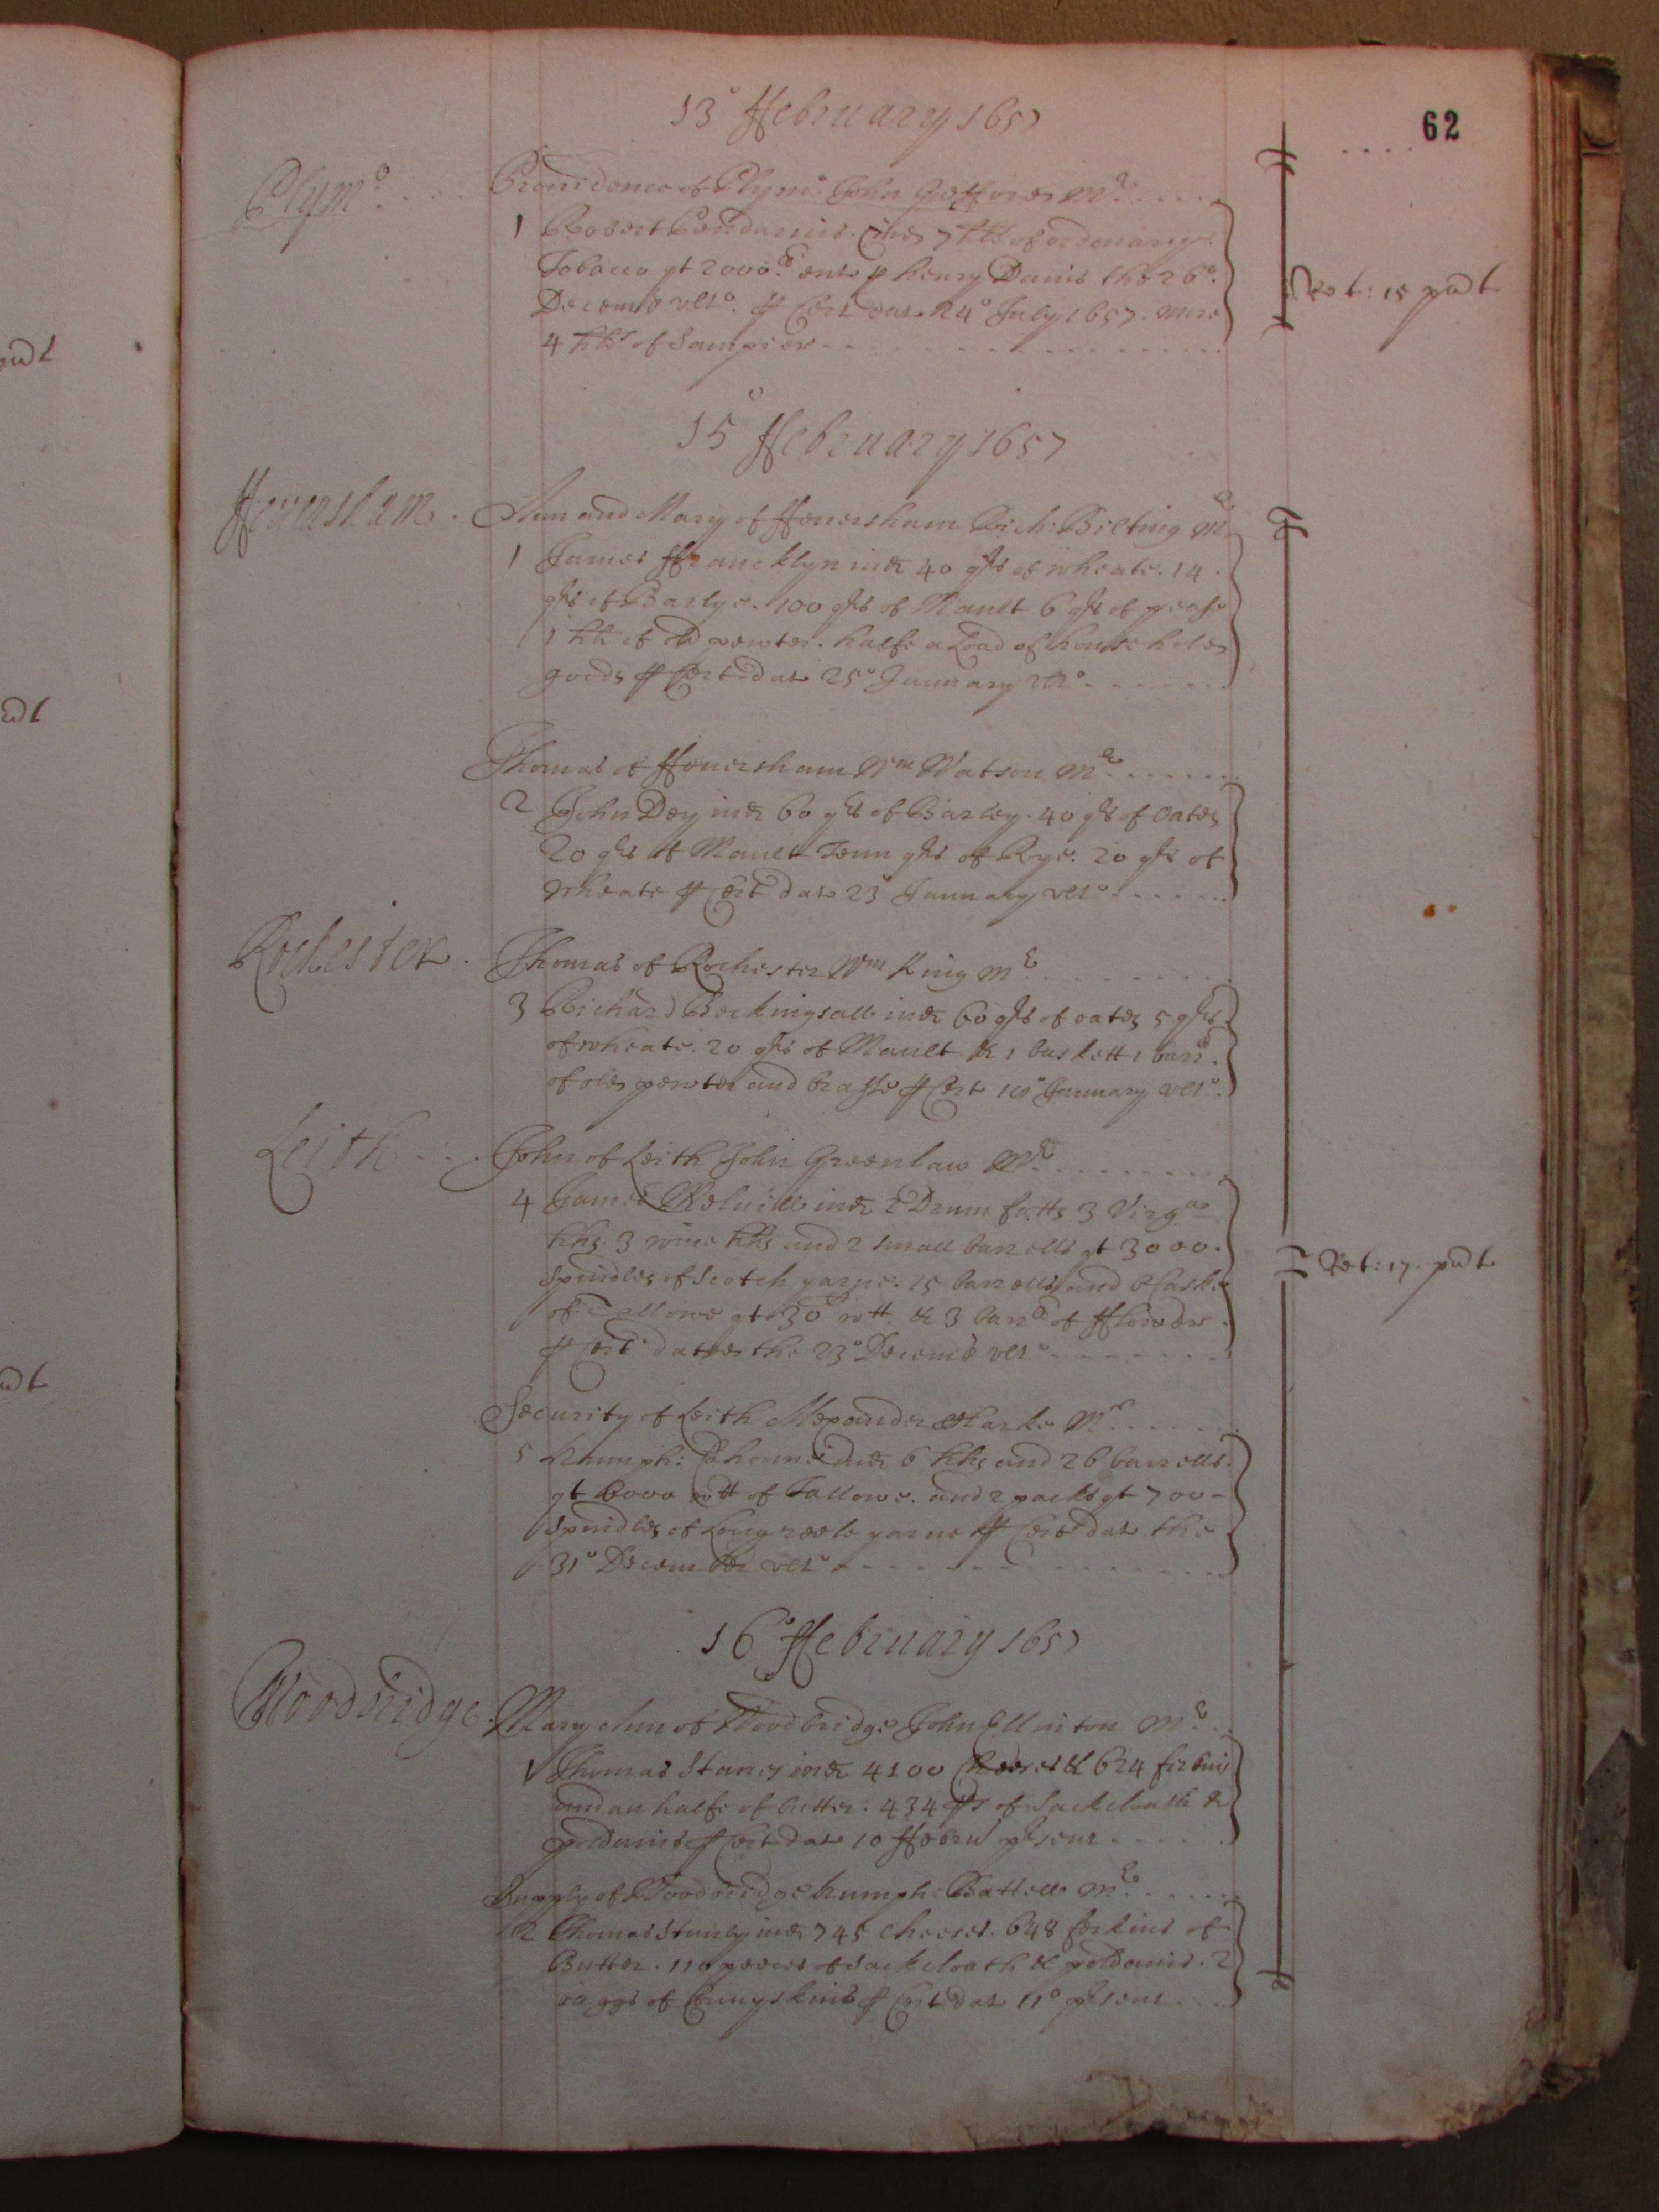 62
13° ffebruary 1657
Plym°
Providence of Plym° John Mr
1 Robert ind 7 hhs of ordenary
Tobacco qt 2000 li ent p henry Davis the 26°
Decemb vlt° p Cert dat 24° July 1657 more
4 hhs of Sampier
Ret: 15 pudt
15° ffebruary 1657
ffeversham
Ann and Mary of ffeversham Rich: Bilting Mr
1 James ffrancklyn ind 40 qrs of wheate. 14
qrs of Barlye. 100 qrs of Mault 6 qrs of pease
1 hh of old pewter. halfe a Load of household
goods p Cert dat 25° January vlt°
Thomas of ffeversham Wm Watson Mr
2 John Dey ind 60 qrs of Barley. 40 qrs of oates
20 qrs of Mault Tenn qrs of Rye. 20 qrs of
wheate p Cert dat 23° January vlt°
Rochester
Thomas of Rochester Wm King Mr
3 Richard Beckingsall ind 60 qrs of oates 5 qrs
of wheate. 20 qrs of Mault & 1 baskett 1 barr
of old pewter and brasse p Cert January vlt°
Leith
John of Leith John Greenlaw Mr
4 James Melvill ind 2 Drum fatts 3 Virga
hhs 3 wine hhs and 2 small barrells qt 3000
Spindles of Scotch yarne. 15 barrells and Caske
of Tallowe qt 30 wtt & 3 barrs of fflower
p Cert dated the 23° Decemb vlt°
Ret: 17 pudt
Security of Leith Alexander Clarke Mr
5 Humph: ind 6 hhs and 26 barrells
qt 6000 wtt of Tallowe. and 2 packs qt 700
Spindles of Long reele yarne p Cert dat the
31° December vlt°
16° ffebruary 1657
Woodbridge
Mary Ann of Woodbridge John Ellinton Mr
1 Thomas Stanly ind 4100 Cheeses & 624 firkins
and an halfe of butter: 434 ps of Sackcloath &
poldavis p Cert dat 10 ffebru psent
Supply of Woodbridge humph: Battell Mr
2 Thomas Stanly ind 745 Cheeses. 648 ferkins of
Butter. 110 peeces of Sackcloath & poldavis. 2
baggs of Connyskins p Cert dat 11° psent